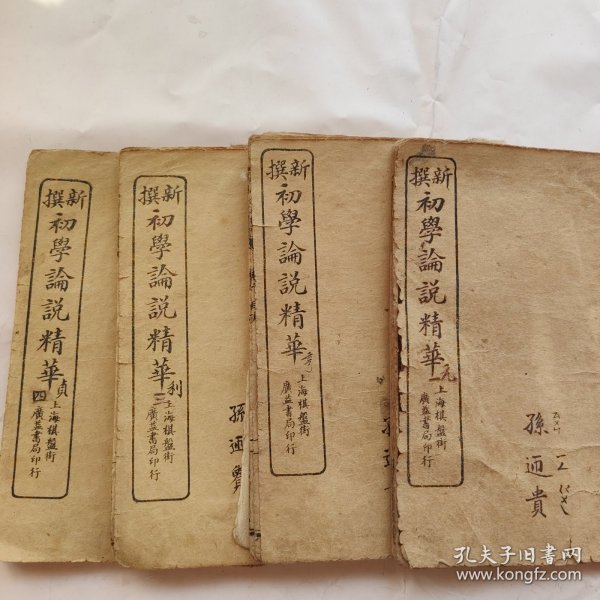 新撰
初學論說精華
元
一
上海棋盤街
廣益書局印行
孫迊貴
新撰
初學論說精華
亨
上海棋盤街
廣益書局印行
新撰
初學論說精華
利
三
上海棋盤街
廣益書局印行
孫迊貴
新撰
初學論說精華
貞
四
上海棋盤街
廣益書局印行
孔夫子旧書网
www.kongfz.com